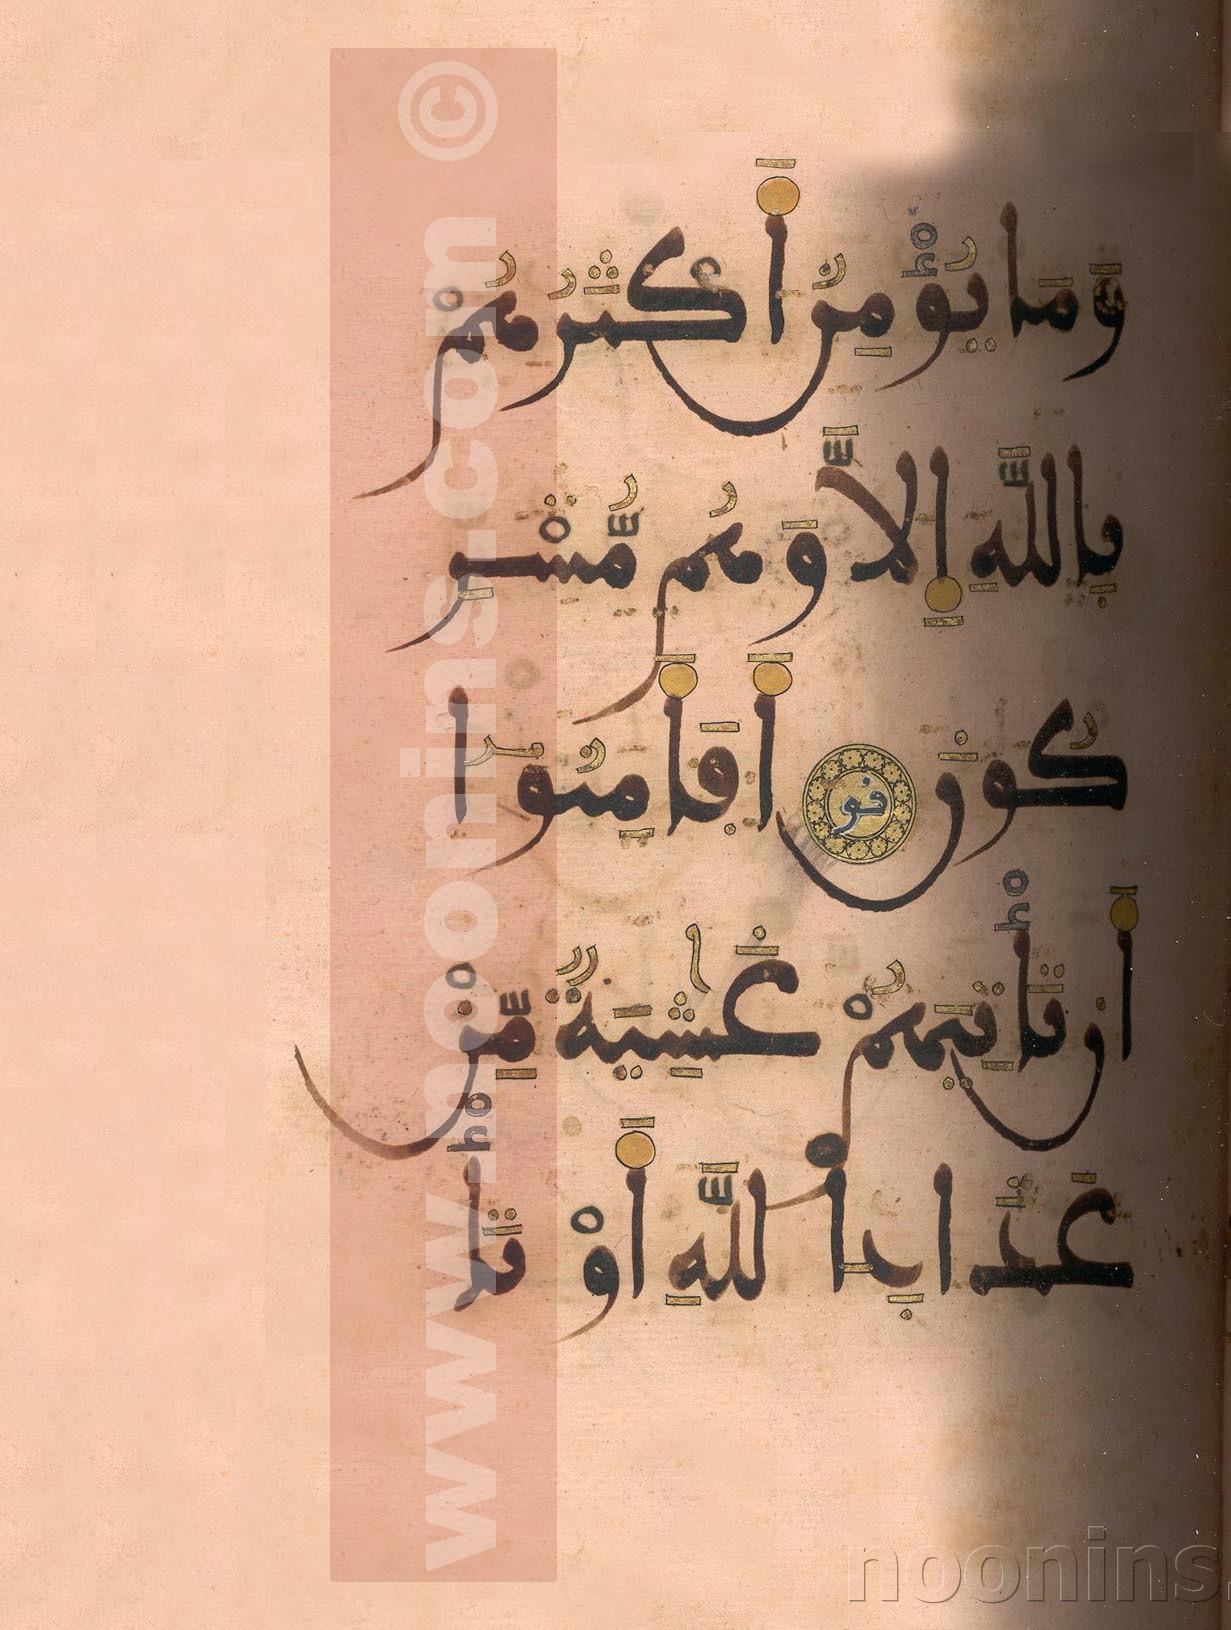 وَمَا يُؤْمِنُ أَكْثَرُهُمْ
بِاللَّهِ إِلَّا وَهُم مُّشْرِ
كُونَ أَفَأَمِنُوا
أَن تَأْتِيَهُمْ غَٰشِيَةٌ مِّنْ
عَذَابِ اللَّهِ أَوْ تَأْ
www.noonins.com ©
noonins